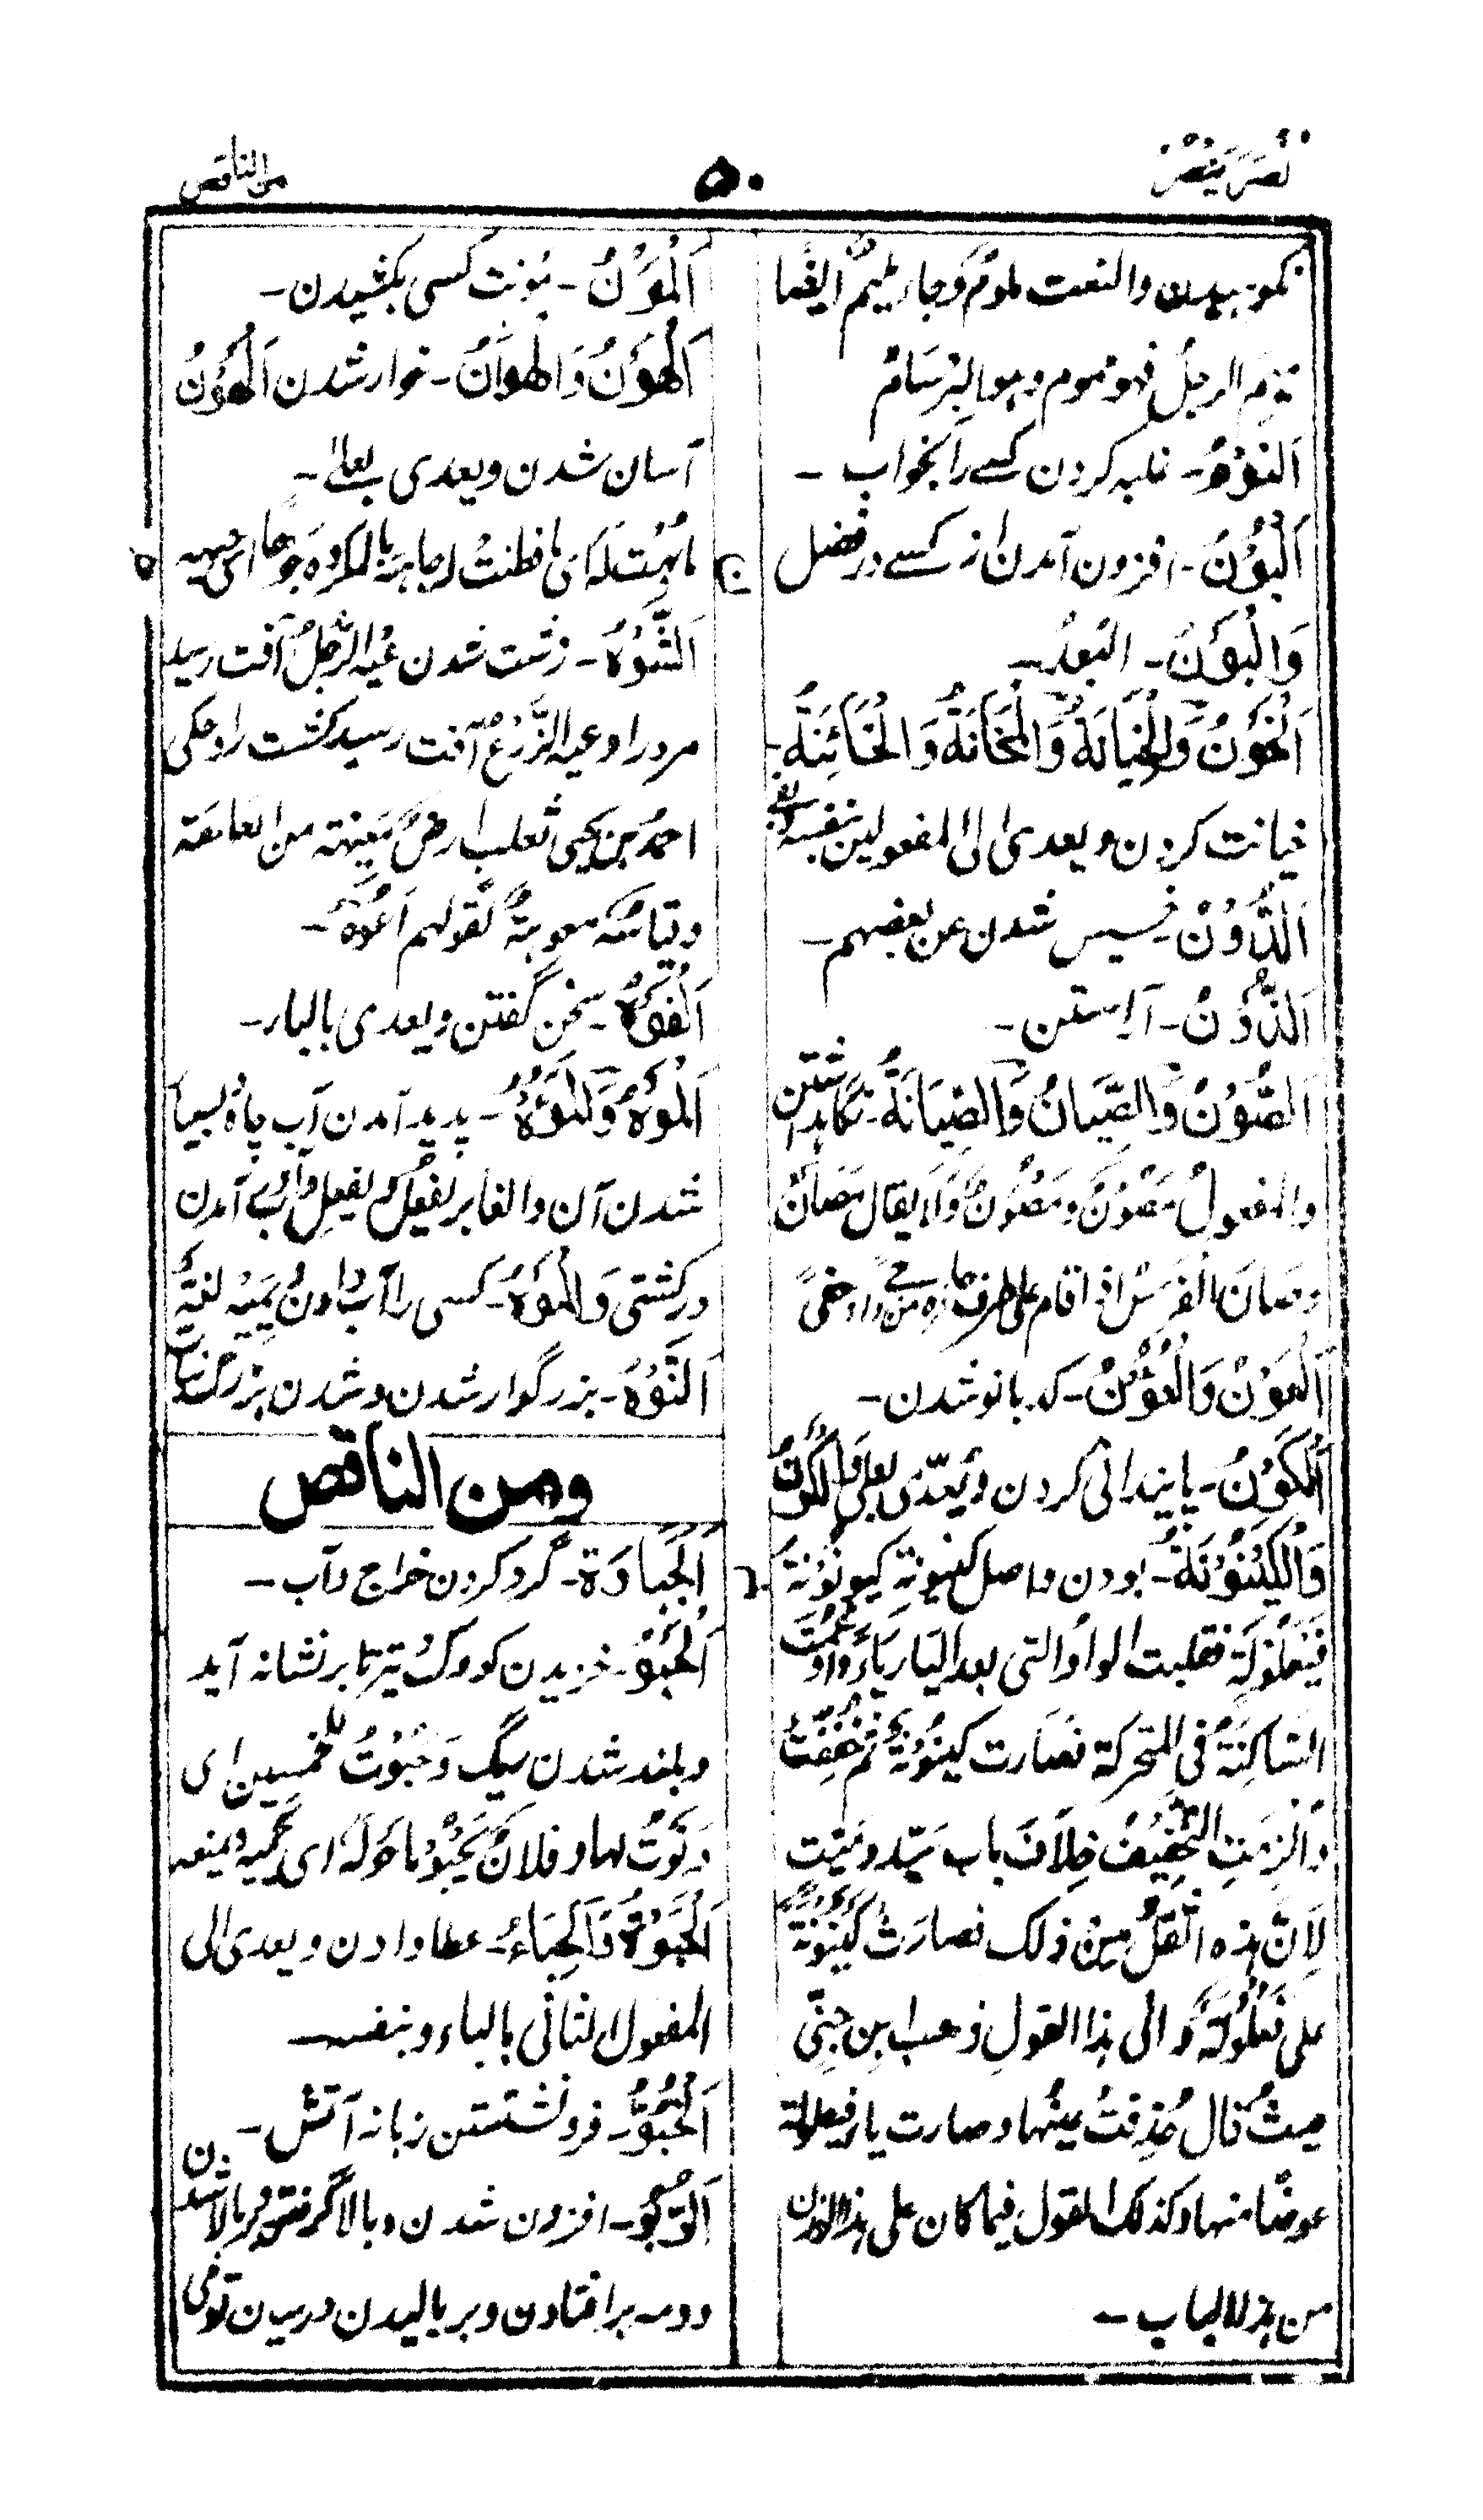 نَصَرَ يَنْصُرُ
۵۰
من الناقص
نكوهيدن والنعت ملوم وجاء مليم ايضا
الرجل فهو موم وهو البرسام
اَلنَّوْمُ - غلبه كردن كسے را بخواب -
اَلْبَوْنُ - افزون آمدن از كسے در فضل
وَالْبَوْنُ - البُعْدُ -
اَلْخَوْنُ وَالْخِيَانَةُ وَالْمَخَانَةُ وَالْخَائِنَةُ -
خيانت كردن ويعدى الى المفعولين بنفسه
اَلدُّوْنُ - خسيس شدن عن بعضهم -
آراستن -
اَلصَّوْنُ وَالصِّيَانُ وَالصِّيَانَةُ - نگاهداشتن
والمفعول مَصُوْنٌ ومَصْوُوْنٌ وَلَا يقال مُصَانٌ
وصَانَ الفَرَسُ اذا قام على طرف حافره من
اَلْعَوْنُ وَالْعُؤُوْنُ - كدبانو شدن -
اَلْكَوْنُ - پايندانى كردن ويُعَدّى بعلى وَالْكَوْنُ
وَالْكَيْنُوْنَةُ - بودن واصل كينونة كيونونة
فَيْعَلُوْلَة فقلبت الواو التى بعد الياء ياءً وادغمت
السَّاكِنَةُ فى المتحركة فصَارت كيّنُوْنة ثم خُفِّفَت
وَاُلْزِمَتِ التخْفِيْفُ خِلَافَ باب سيّد وميّت
لِاَنَّ هذه اثقَلُ مِنْ ذلك فصارَتْ كَيْنُوْنَةٌ
على فَعْلُوْلَةٍ والى هذا القولِ ذهب ابن جِنّى
حيثُ قال حُذِفَتْ عينُها وصارت ياء فيعلولة
عوضًا منها وكذلك القول فيما كان على هذا الوزن
من هذا الباب -
اَلْمَوْنُ - مؤنت كسى بكشيدن -
اَلْهُوْنُ وَالْهَوَانُ - خوار شدن اَلْهَوْنُ
آسان شدن ويعدى بعلى -
اَلشَّوْهُ - زشت شدن عِيْهَ الرَّجُلُ آفت رسيد
مرد را وعيه الزَّرْعُ آفت رسيد كشت را وحكى
احمدُ بن يحيى ثعلب ارضٌ مَعِيْهَة من العَاهَة
وقياسُه معوهةٌ لقولهم اَعْوَهَ -
اَلْفَوْهُ - سخن گفتن ويعدى بالباء -
اَلْمَوْهُ وَالْمُؤُوْهُ - پديد آمدن آب چاه وبسيار
شدن آن والغابر يفعُل ويفعِل وآب آمدن
در كشتى وَالْمَوْهُ - كسى را آب دادن يَمِيْهُ لغةٌ
اَلنَّوْهُ - بزرگوار شدن وشدن بزرگ
ومن الناقص
اَلْجِبَاوَة - گرد كردن خراج وآب -
اَلْحَبْوُ - خزيدن كودك وتير تا بر نشانه آيد
وبلند شدن ريگ وَحَبَوْتُ للخمسين اى
دَنَوْتُ لها وفلانٌ يَحْبُوْ ما حَوْلَهٗ اى يحميه ويمنعه
اَلْحَبْوَةُ وَالْحِبَاءُ - عطا دادن ويعدى الى
المفعول الثانى بالباء وبنفسه -
اَلْخُبُوُّ - فرو نشستن زبانه آتش -
اَلرَّبْوُ - افزون شدن وبالا گرفتن وبر بالا شدن
ودمه بر افتادن وبر باليدن درميان قومى